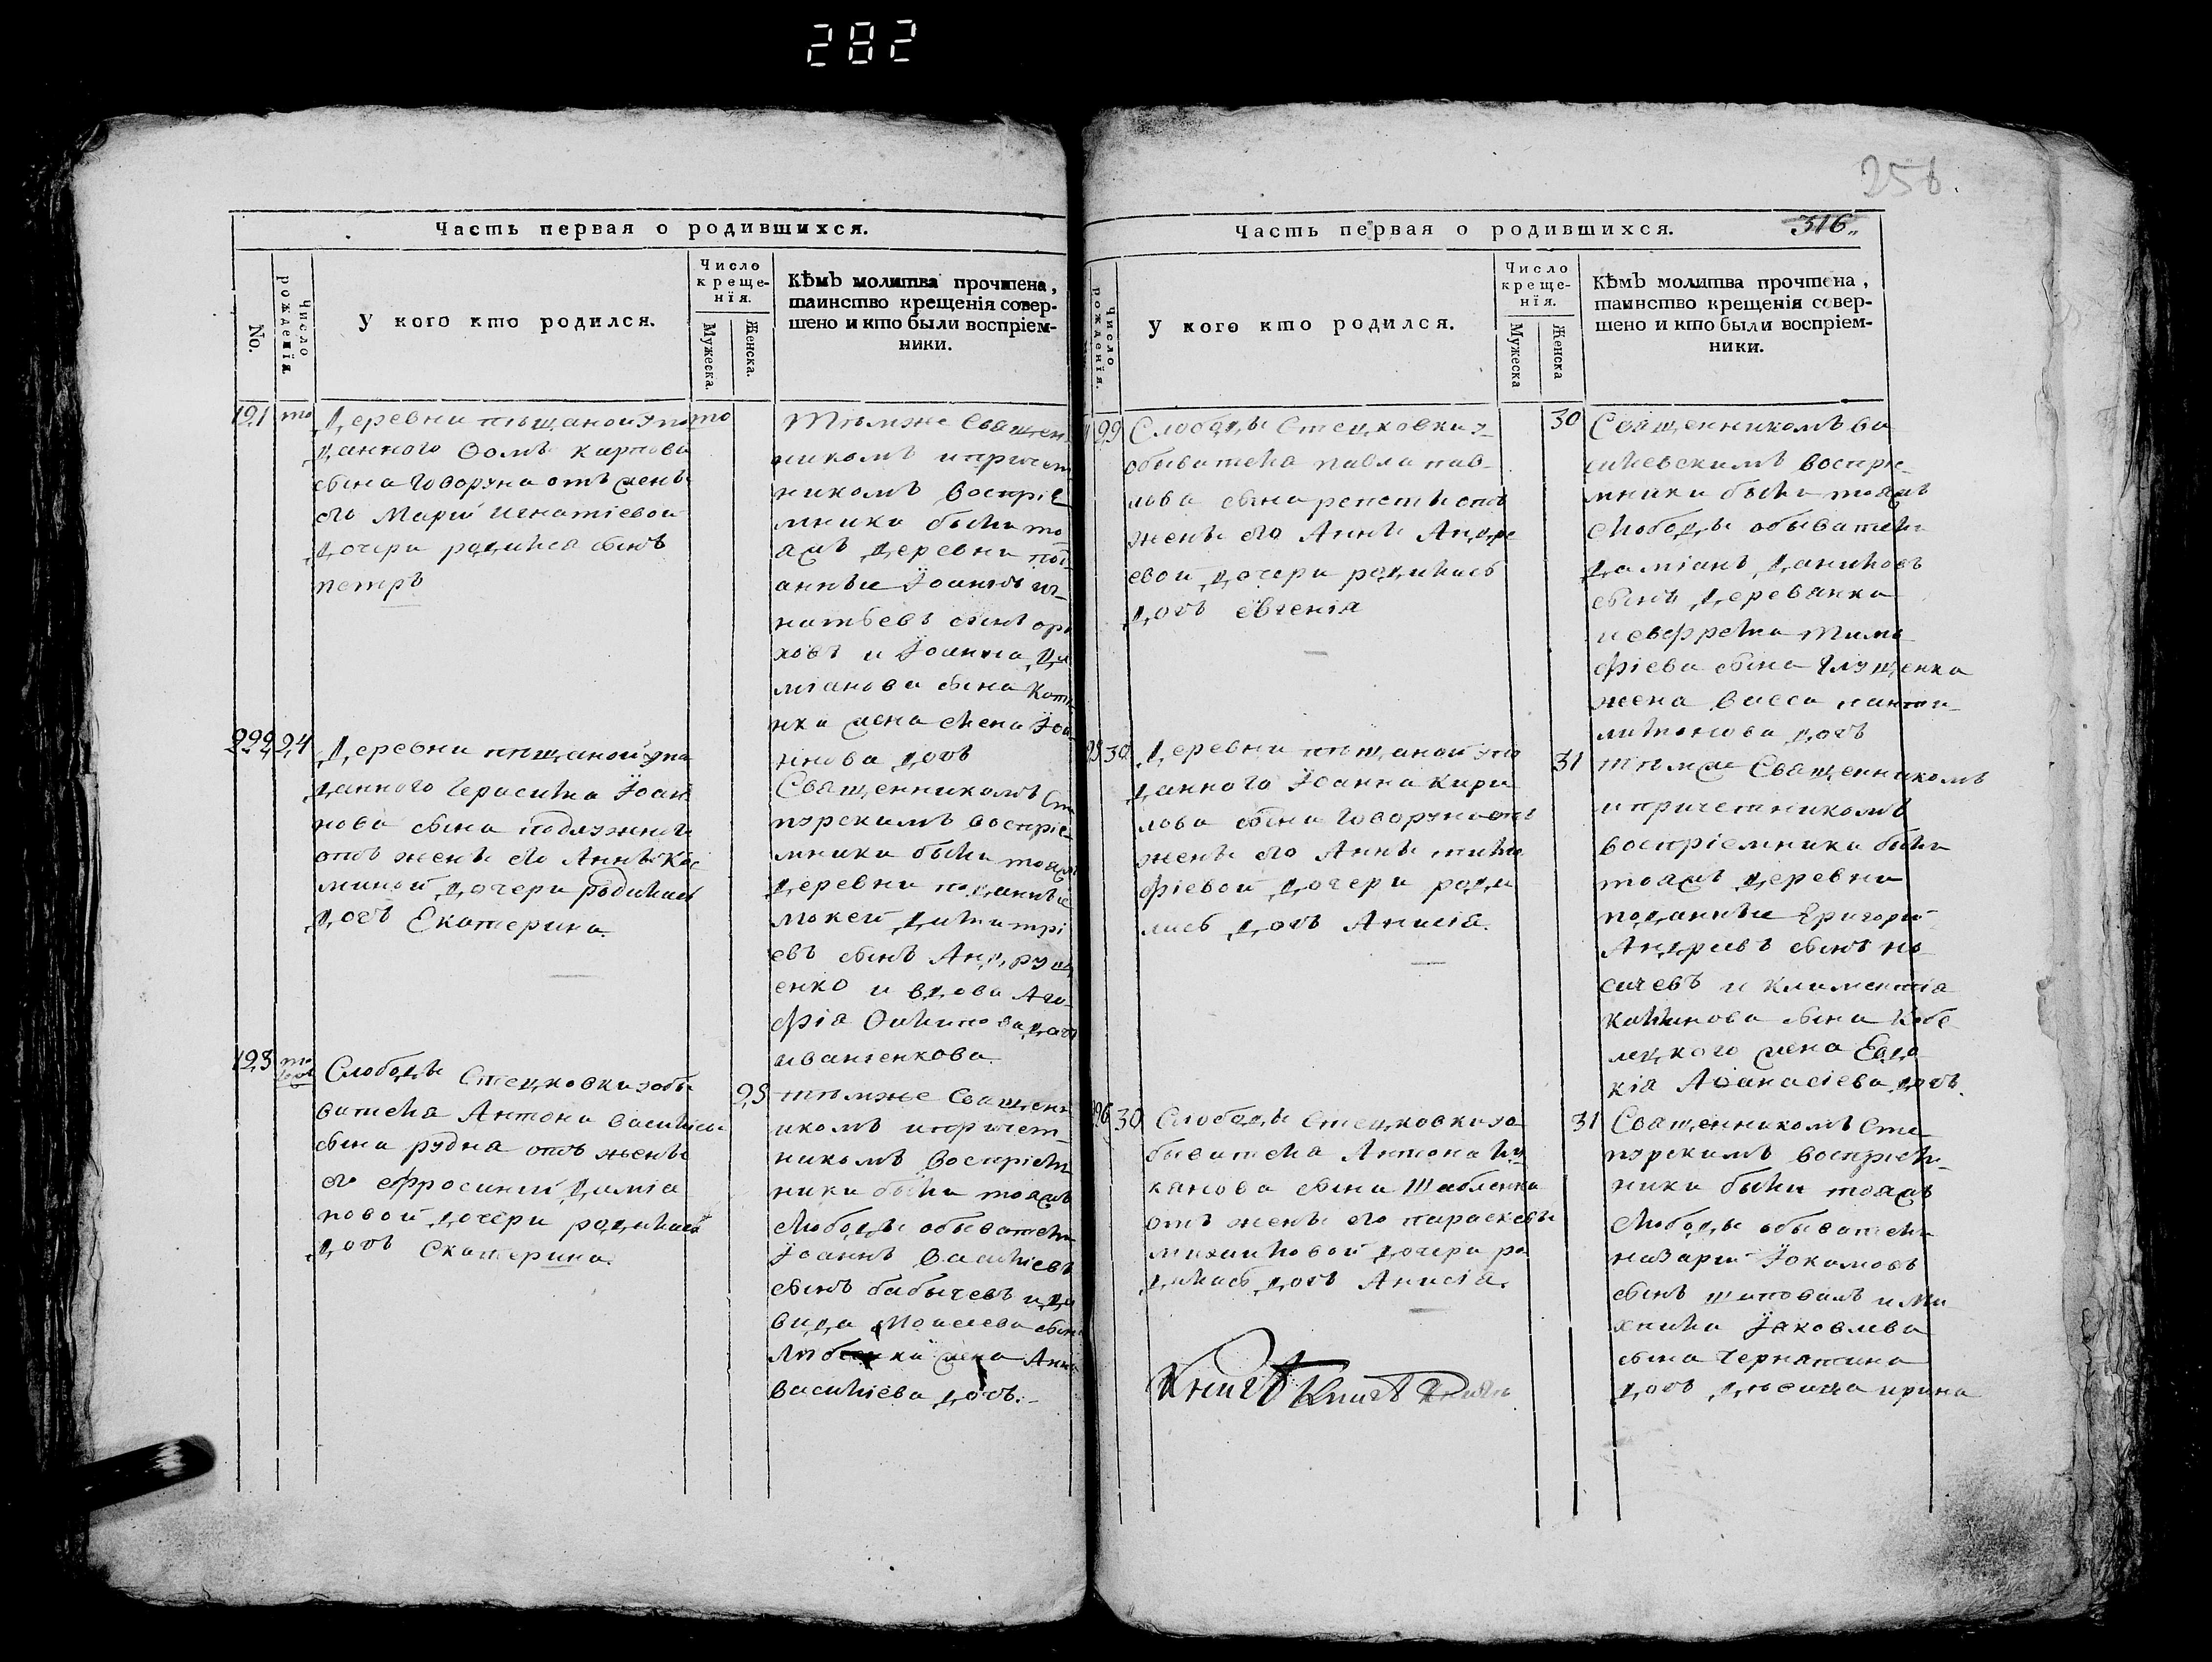 282
Часть первая о родившихся.
No.
Число рожденїя.
У кого кто родился.
Число крещенїя.
Мужеска.
Женска.
Кѣмъ молитва прочтена,
таинство крещенія совер-
шено и кто были воспріем-
ники.
191
то
Деревни пѣщаной упо
данного Ѳомы карпова
сына Говоруна отъ жены
его Маріи игнатіевой
дочери родился сынъ
петръ
то
Тѣмже Священ
никомъ и причет
никомъ воспріе
мники были то
яжъ деревни
Іоаннъ иг
натьевъ сынъ
и Іоанна Да
міанова сына
жена Іоа
ннова дочь
222
24
Деревни пѣщаной упо
данного Герасима Іоан
нова сына
отъ жены его Анны Кос
миной дочери родилась
дочь Екатерина.
Священникомъ Сте
пурскимъ воспріе
мники были тояжъ
деревни подданные
мокей димитрі
евъ сынъ Андрущ
енко и вдова Ага
фіа дочь
иваненкова
193
Слободы Стецковки уобы
вателя Антона василіева
сына рудня отъ жены
его ефросиніи Даміа
новой дочери родилась
дочь Екатерина.
25
тѣмже Священ
икомъ и причет
никомъ воспріем
ники были тояжъ
слободы обыватели
Іоаннъ Василіевъ
сынъ бабычевъ и Да
вида Моисеева сына
жена Анна
василіева дочь.
256.
316
Часть первая о родившихся.
Число рожденїя.
У кого кто родился.
Число крещенїя.
Мужеска
Женска
Кѣмъ молитва прочтена,
таинство крещенія совер-
шено и кто были воспріем-
ники.
29
Слободы Стецковки у
обывателя павла пав
лова сына отъ
жены его Анны Андре
евой дочери родилась
дочь евгенія
30
Священникомъ ва
силевскимъ воспрі
мники были тояжъ
слободы обыватели
даміанъ даниловъ
сынъ Деревянко
и Тимо
фіева сына Глущенка
жена васса
дочь
30
Деревни пѣщаной упо
данного Іоанна Кири
лова сына Говоруна отъ
жены его Анны тимо
фіевой дочери роди
лась дочь Анисіа.
31
тѣмже Священникомъ
и причетникомъ
воспріемники были
тояжъ деревни
подданные Григорій
Андреевъ сынъ но
сачевъ и климентіа
сына Кобе
лецкого жена Евдо
кіа Аѳанасіева дочь.
30
Слободы Стецковки уо
бывателя Антона лу
канова сына Шабленка
отъ жены его параскевы
михаиловой дочери ро
дилась дочь Анисіа.
31
Священникомъ Сте
пурскимъ воспріем
ники были тояжъ
слободы обыватели
назарій Іокимовъ
сынъ шаповалъ и Ми
хаила Іаковлева
сына Чернятина
дочь дѣвица ирина